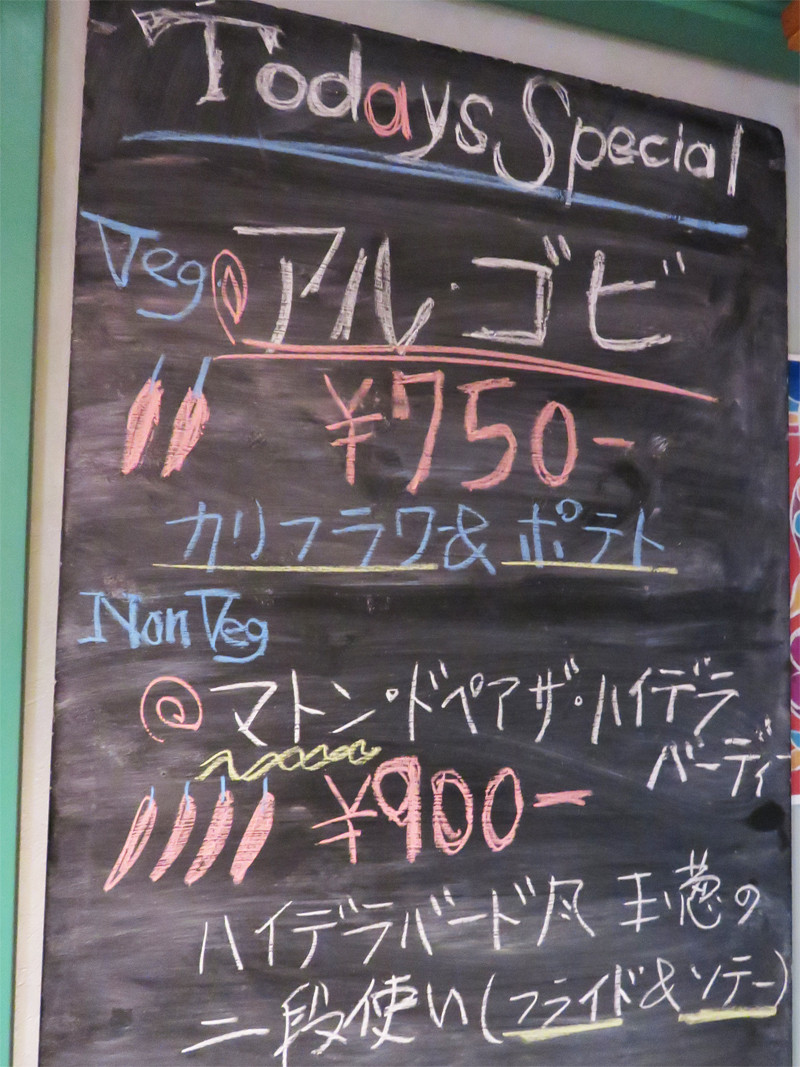 Todays Special
Veg @アル・ゴビ
¥750-
カリフラワ&ポテト
Non Veg
@マトン・ドペアザ・ハイデラ
バーディー
¥900-
ハイデラバード風 玉葱の
二段使い(フライド&ソテー)